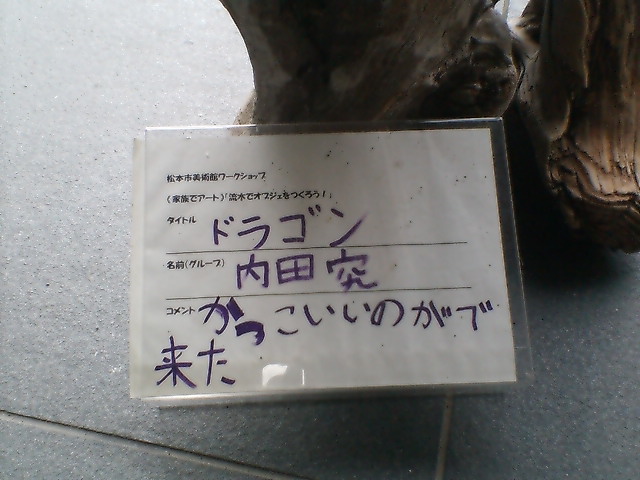 松本市美術館ワークショップ
〈家族でアート〉「流木でオブジェをつくろう！」
タイトル ドラゴン
名前（グループ） 内田 究
コメント かっこいいのがで
来た